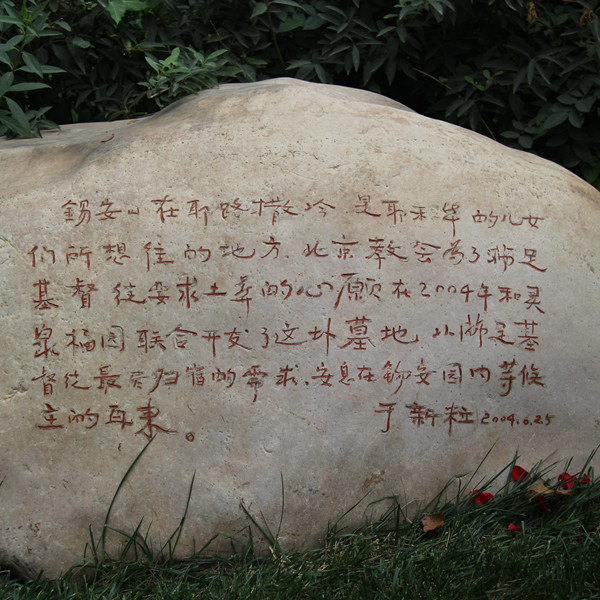 锡安山在耶路撒冷.是耶和华的儿女
们所想往的地方.北京教会为了满足
基督徒要求土葬的心愿在2004年和灵
泉福园联合开发了这块墓地.以满足基
督徒最后归宿的需求.安息在锡安园内等候
主的再来。 于新粒 2004.6.25